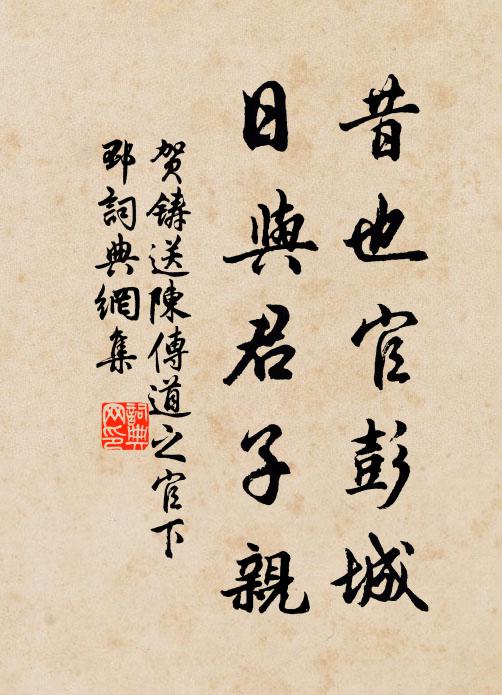 昔也官彭城
日與君子親
賀鑄送陳傳道之官下
邳詞典網集
詞典网印